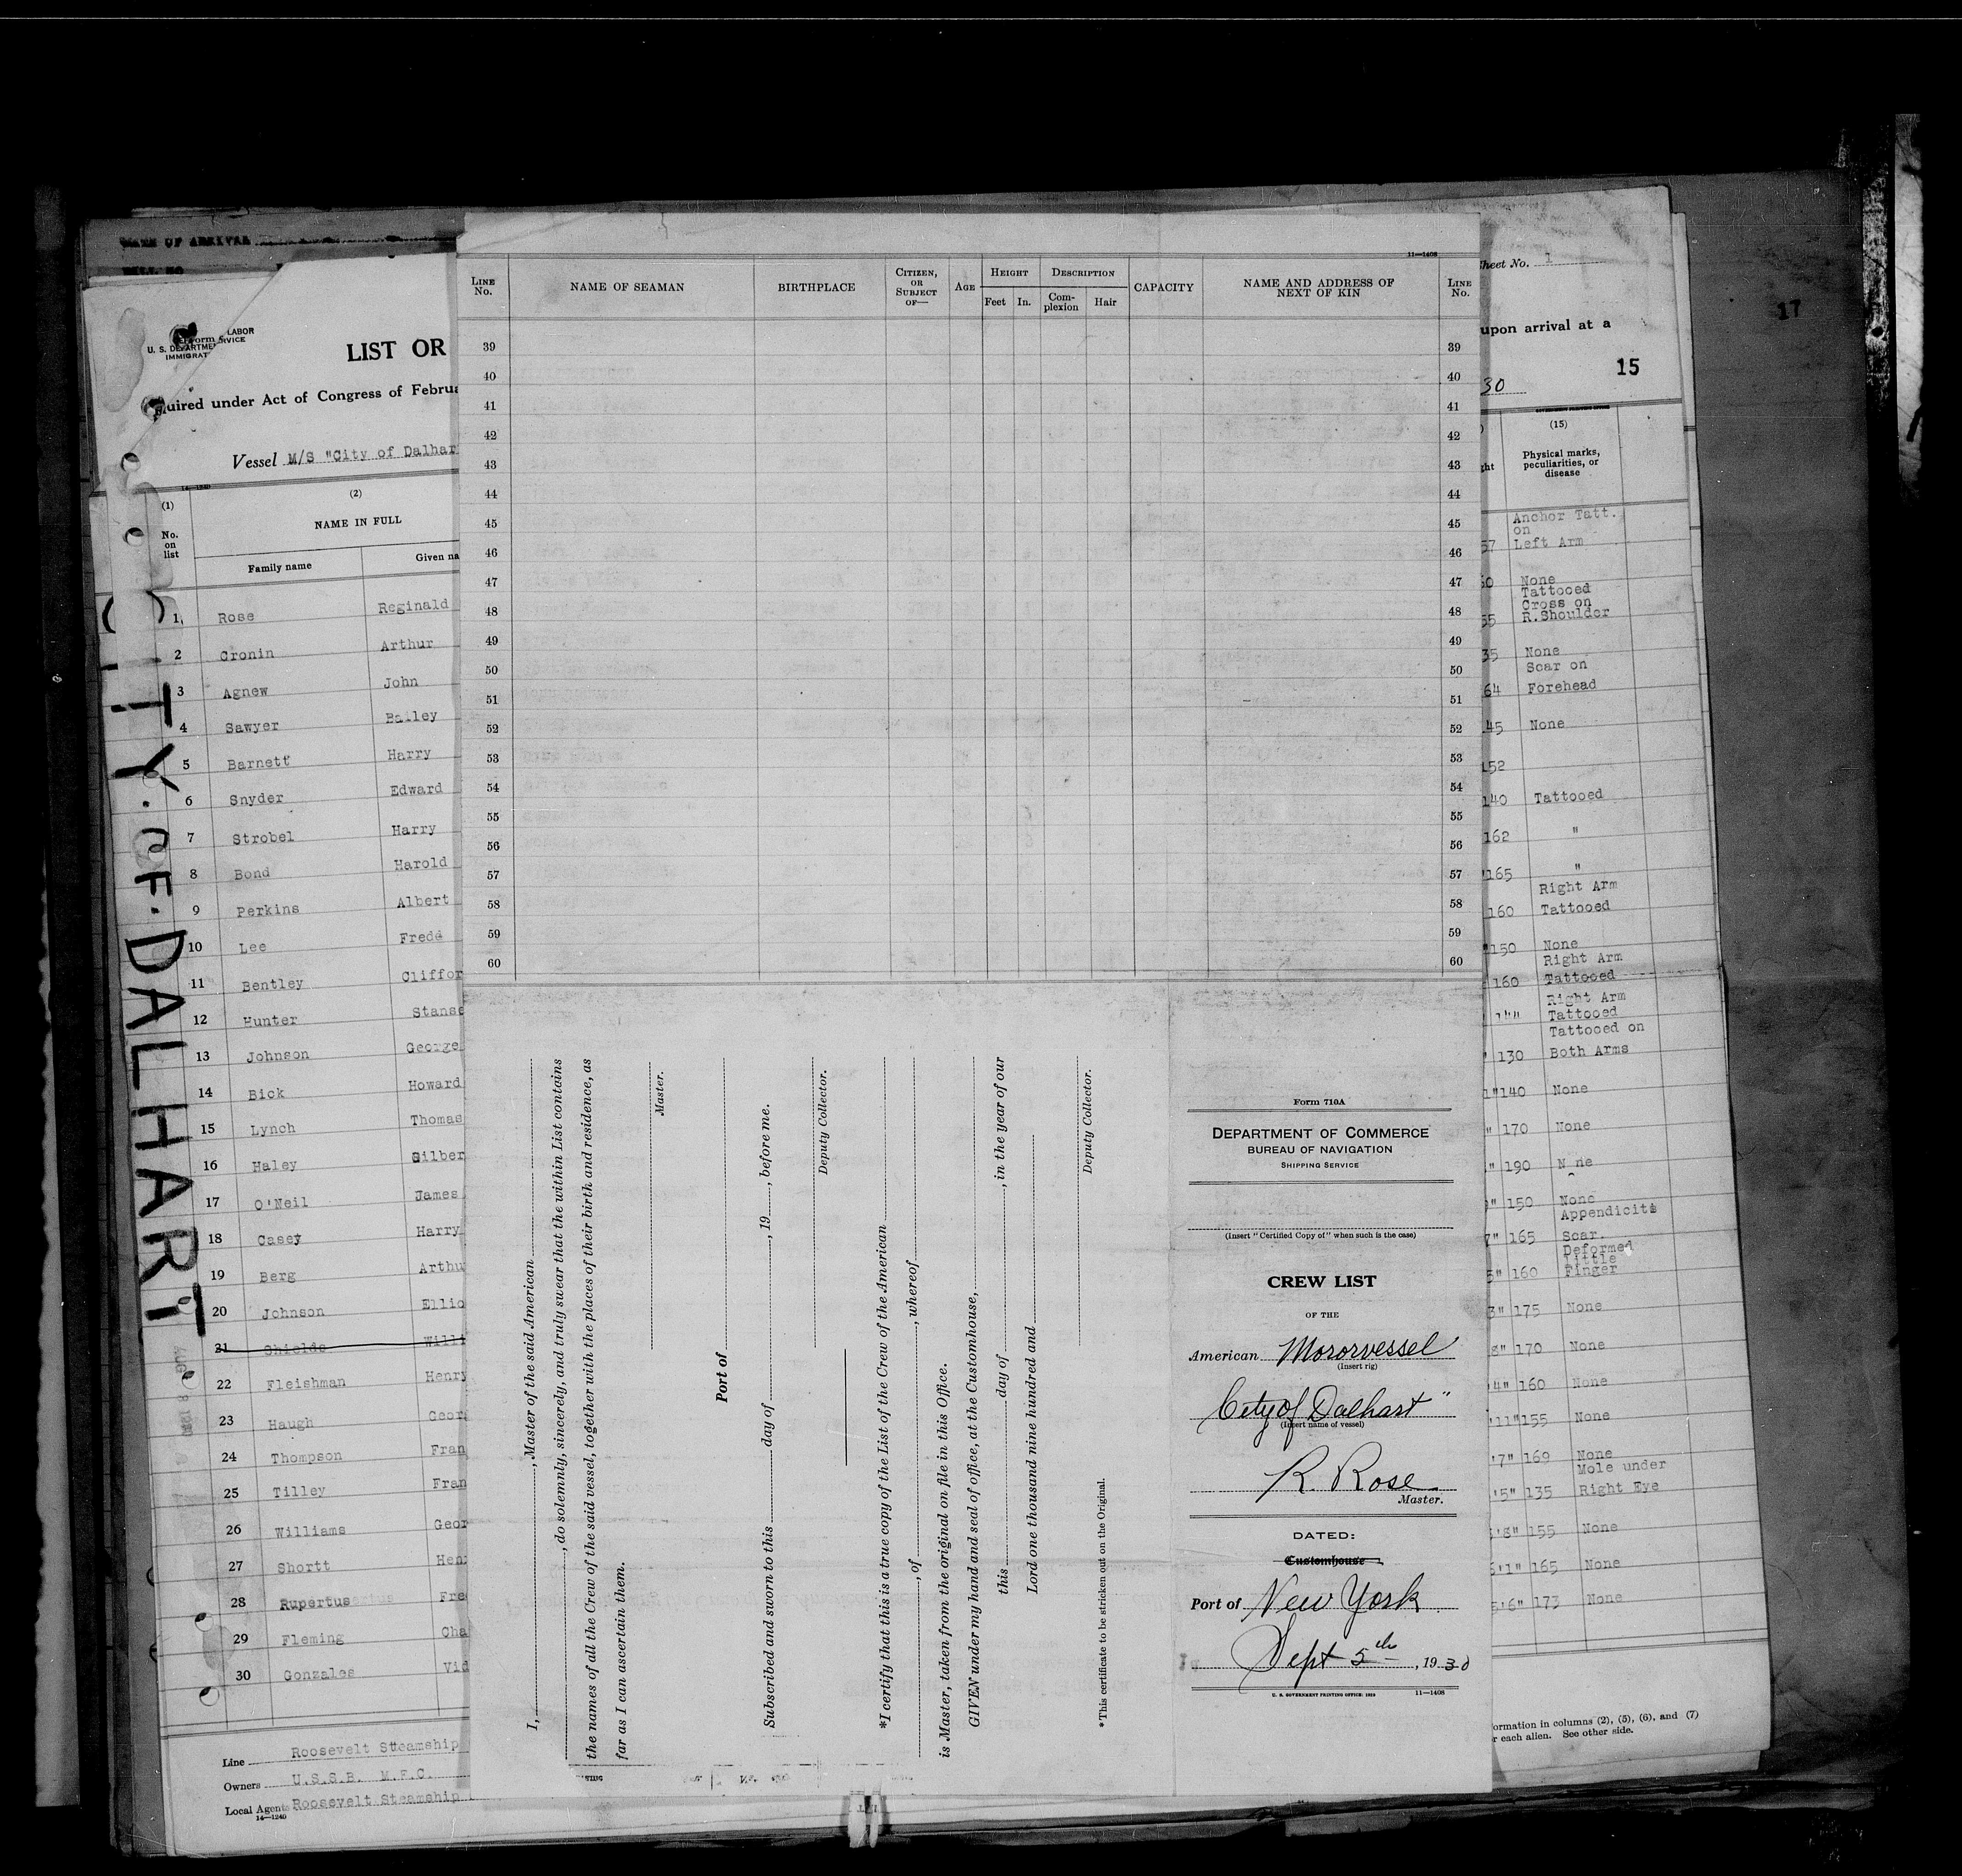 LABOR
U. S. DEPARTME
IMMIGRAT
LIST OR
quired under Act of Congress of Februa
Vessel M/S "City of Dalhar
(1)
(2)
No.
on
list
NAME IN FULL
Family name
Given na
1, Rose Reginald
2 Cronin Arthur
3 Agnew John
4 Sawyer Bailey
5 Barnett Harry
6 Snyder Edward
7 Strobel Harry
8 Bond Harold
9 Perkins Albert
10 Lee Fredd
11 Bentley Cliffor
12 Hunter Stans
13 Johnson George
14 Bick Howard
15 Lynch Thomas
16 Haley Gilber
17 O'Neil James
18 Casey Harry
19 Berg Arthu
20 Johnson Ellio
21 Shields Willi
22 Fleishman Henry
23 Haugh Geor
24 Thompson Fran
25 Tilley Fran
26 Williams Geor
27 Shortt Hen
28 Rupertus Fre
29 Fleming Cha
30 Gonzales Vid
Line Roosevelt Steamship
Owners U.S.S.B. M.F.C.
Local Agents Roosevelt Steamship
14—1240
CITY. OF. DALHART
11—1408
LINE
No.
NAME OF SEAMAN
BIRTHPLACE
CITIZEN,
OR
SUBJECT
OF—
AGE
HEIGHT
Feet In.
DESCRIPTION
Com-
plexion
Hair
CAPACITY
NAME AND ADDRESS OF
NEXT OF KIN
LINE
No.
39 39
40 40
41 41
42 42
43 43
44 44
45 45
46 46
47 47
48 48
49 49
50 50
51 51
52 52
53 53
54 54
55 55
56 56
57 57
58 58
59 59
60 60
I, , Master of the said American
, do solemnly, sincerely, and truly swear that the within List contains
the names of all the Crew of the said vessel, together with the places of their birth and residence, as
far as I can ascertain them.
Master.
Port of
Subscribed and sworn to this day of , 19 , before me.
Deputy Collector.
*I certify that this is a true copy of the List of the Crew of the American
, of , whereof
is Master, taken from the original on file in this Office.
GIVEN under my hand and seal of office, at the Customhouse,
this day of , in the year of our
Lord one thousand nine hundred and
Deputy Collector.
*This certificate to be stricken out on the Original.
Form 710A
DEPARTMENT OF COMMERCE
BUREAU OF NAVIGATION
SHIPPING SERVICE
(Insert "Certified Copy of" when such is the case)
CREW LIST
OF THE
American Mororvessel
(Insert rig)
City of Dalhart"
(Insert name of vessel)
R. Rose
Master.
DATED:
Customhouse
Port of New York
Sept 5th, 1930
U. S. GOVERNMENT PRINTING OFFICE: 1929
11—1408
Sheet No. 1
17
upon arrival at a
15
30
GOVERNMENT PRINTING OFFICE
(15)
ght
Physical marks,
peculiarities, or
disease
Anchor Tatt.
on
57 Left Arm
60 None
Tattooed
Cross on
55 R.Shoulder
35 None
Scar on
64 Forehead
145 None
152
140 Tattooed
162 "
165 "
Right Arm
160 Tattooed
150 None
Right Arm
160 Tattooed
Right Arm
144 Tattooed
Tattooed on
130 Both Arms
1"140 None
" 170 None
" 190 N ne
" 150 None
Appendicits
7" 165 Scar.
Deformed
Little
5" 160 Finger
3" 175 None
8" 170 None
'4" 160 None
'11"155 None
'7" 169 None
Mole under
'5" 135 Right Eye
'8" 155 None
6'1" 165 None
5'6" 173 None
ormation in columns (2), (5), (6), and (7)
r each alien. See other side.